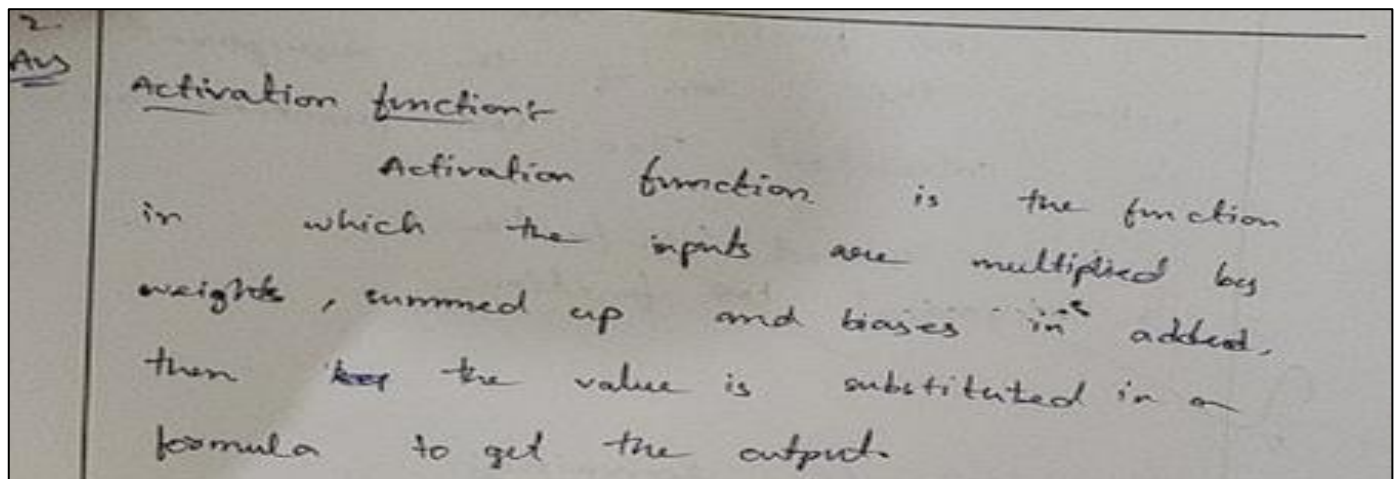 2.
Ans
Activation function:-
Activation function is the function
in which the inputs are multiplied by
weights, summed up and biases is added,
then the value is substituted in a
formula to get the output.